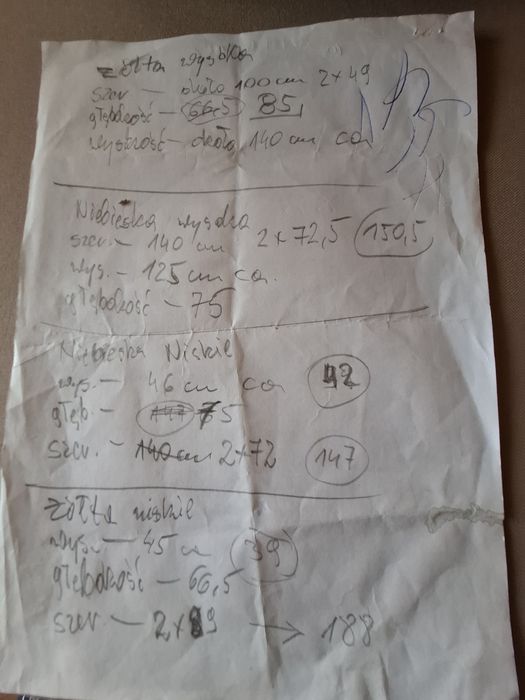 żółta wysoka
szer. – około 100 cm 2x49
głębokość – 66,5 85
wysokość – około 140 cm ca
Niebieska wysoka
szer. – 140 cm 2x72,5 150,5
wys. – 125 cm ca.
głębokość – 75
Niebieska Niskie
wys. – 46 cm ca 42
głęb. – 147 75
szer. – 140 cm 2x72 147
żółta niskie
wys. – 45 39
głębokość – 66,5
szer. – 2x89 → 188